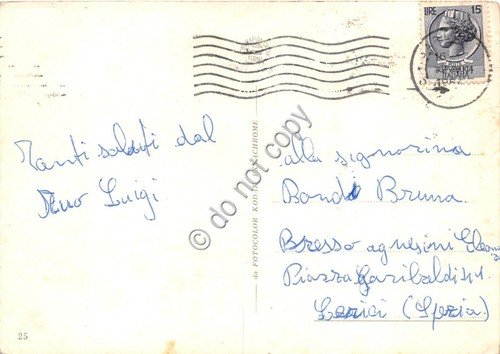 LIRE 15
Tanti saluti dal
tuo Luigi
da FOTOCOLOR KODAK EKTACHROME
© do not copy
alla signorina
Bondi Bruna
Bresso agnesini
Piazza Garibaldi
Lerici (Spezia)
25